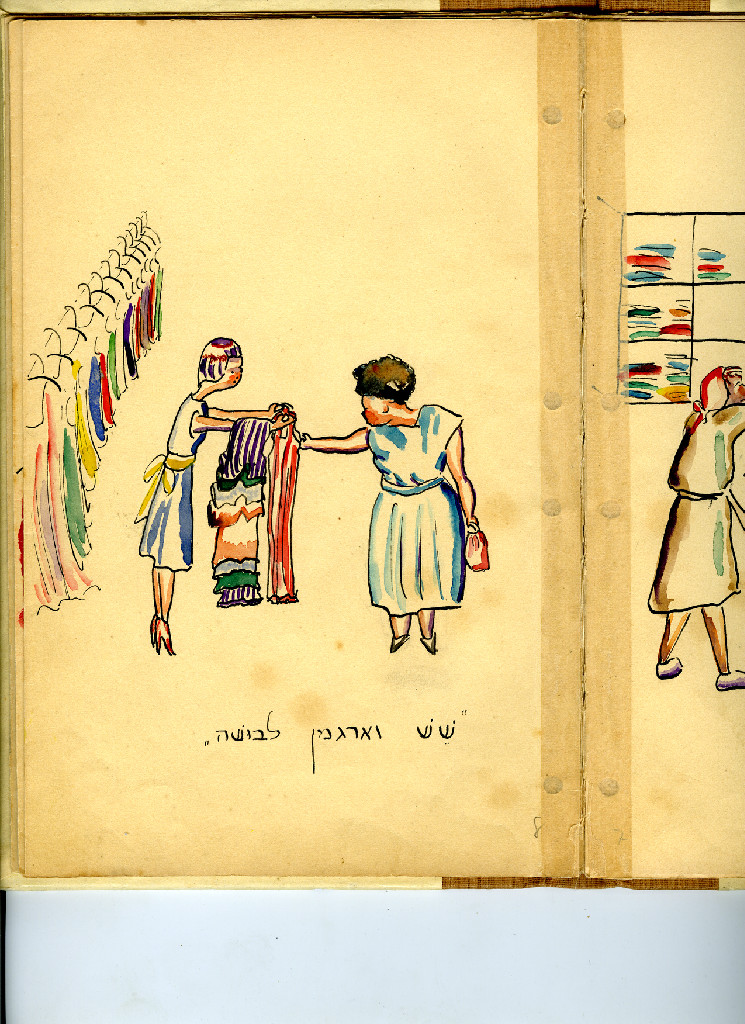 "שֵׁשׁ וארגמן לבושה"
8 7